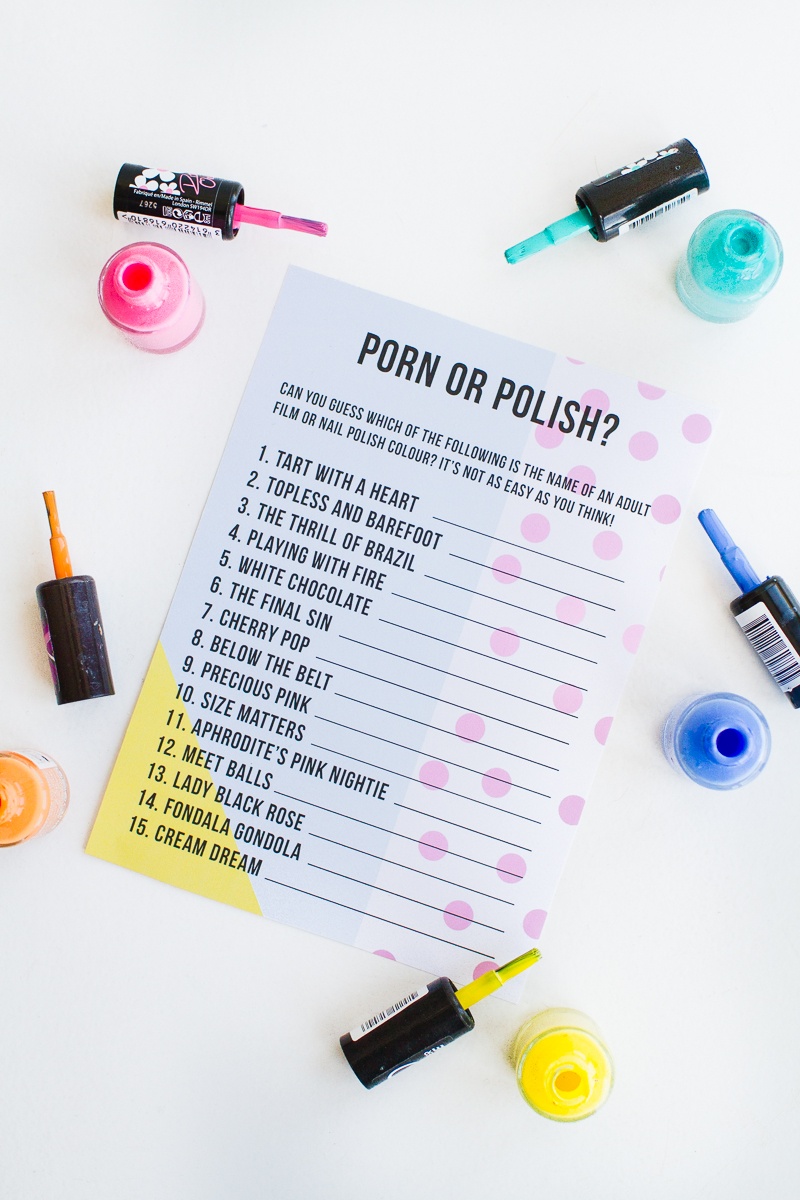 Fabriqué en/Made in Spain - Rimmel
London SW194DR
5267
PORN OR POLISH?
CAN YOU GUESS WHICH OF THE FOLLOWING IS THE NAME OF AN ADULT
FILM OR NAIL POLISH COLOUR? IT'S NOT AS EASY AS YOU THINK!
1. TART WITH A HEART
2. TOPLESS AND BAREFOOT
3. THE THRILL OF BRAZIL
4. PLAYING WITH FIRE
5. WHITE CHOCOLATE
6. THE FINAL SIN
7. CHERRY POP
8. BELOW THE BELT
9. PRECIOUS PINK
10. SIZE MATTERS
11. APHRODITE'S PINK NIGHTIE
12. MEET BALLS
13. LADY BLACK ROSE
14. FONDALA GONDOLA
15. CREAM DREAM